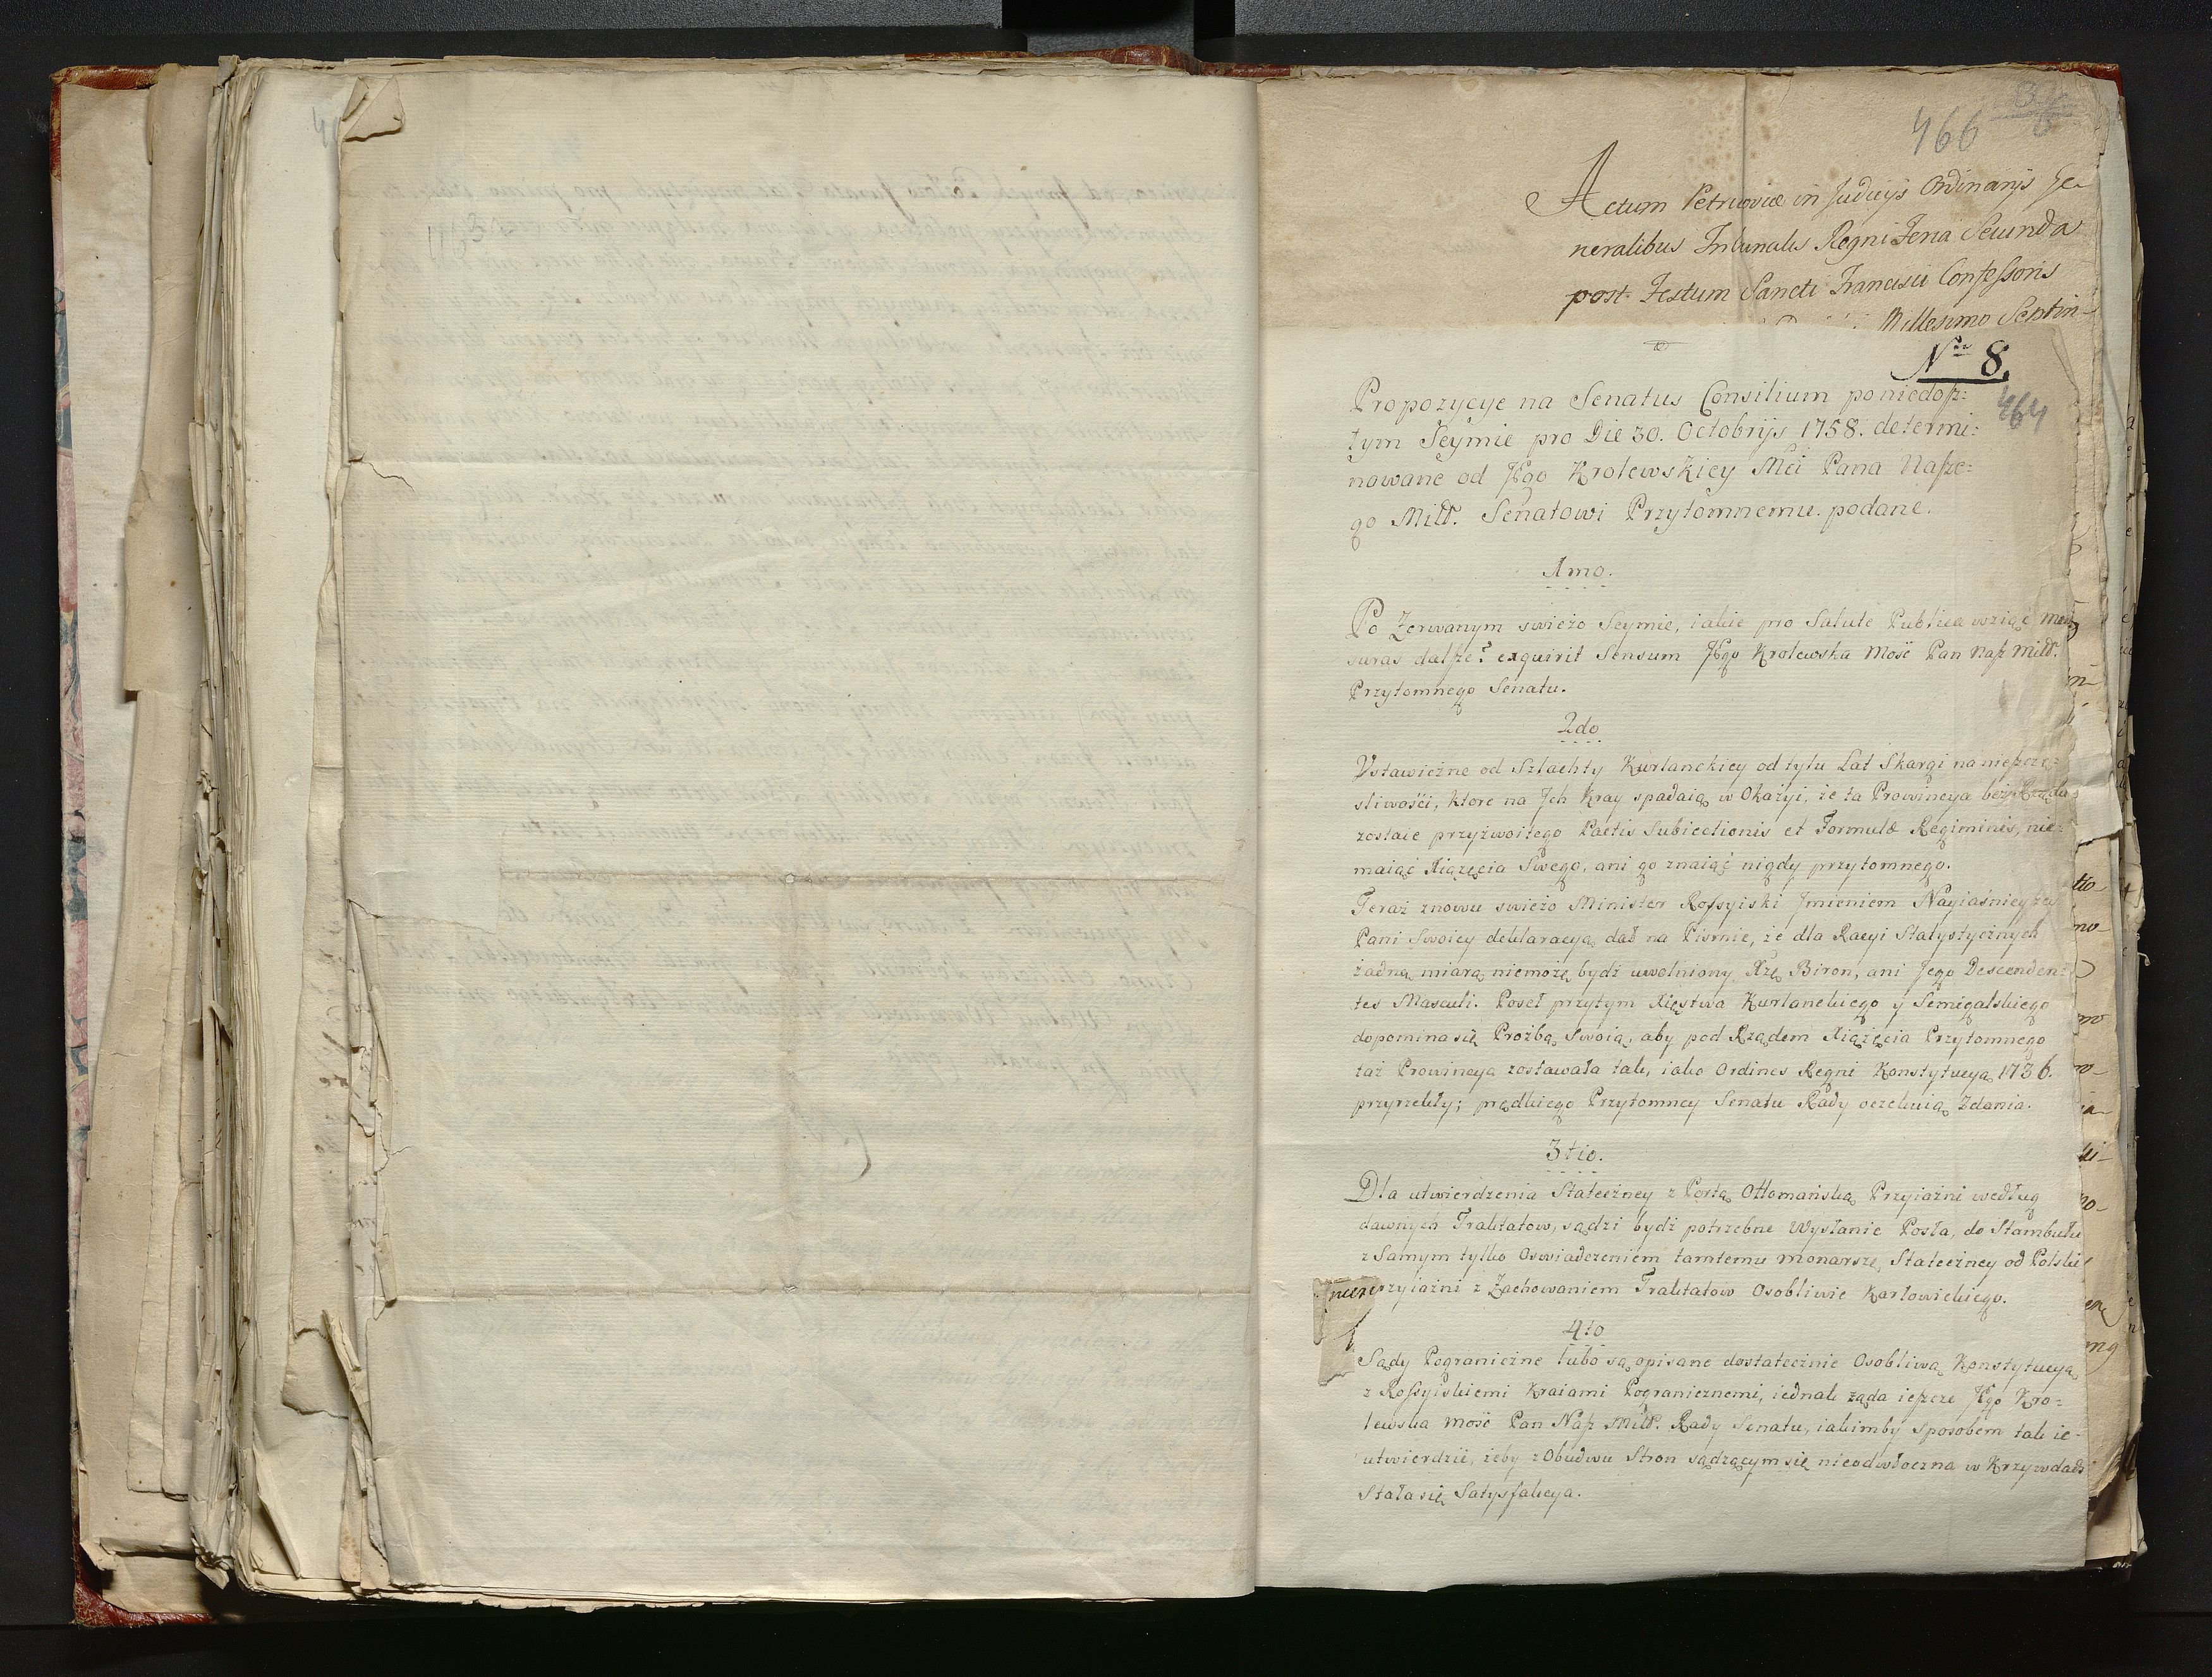 466
Actum Petricoviæ in Judicijs Ordinarijs Ge-
neralibus Tribunalis Regni Feria Secunda
post Festum Sancti Francisci Confessoris
Millesimo Septin-
Nro 8.
464
Propozycye na Senatus Consilium poniedosz:
tym Seymie pro Die 30. Octobrijs 1758. determi:
nowane od JKgo Krolewskiey Mći Pana Nasze:
go Miłł. Senatowi Przytomnemu podane.
1mo.
Po Zerwanym swieżo Seymie, iakie pro Salute Publica wziąć men
suras dalsze? exquirit Sensum JKgo Krolewska Mość Pan Nasz Miłł.
Przytomnego Senatu.
2do
Ustawiczne od Szlachty Kurlandzkiey od tylu Lat Skargi na nieszczę-
sliwości, ktore na Jch Kray spadaią w Okazyi, że ta Prowincya bez Rządu
zostaie przyzwoitego Pactis Subiectionis et Formulæ Regiminis, nie-
maiąć Xiążęcia Swego, ani go znaiąć nigdy przytomnego.
Teraz znowu swieżo Minister Rossyiski Jmieniem Nayiaśnieyszey
Pani Swoiey deklaracyą dał na Pismie, że dla Racyi Statystycznych
żadną miarą niemożę bydź uwolniony Xżę Biron, ani Jego Descenden-
tes Masculi. Poseł przytym Xięstwa Kurlandzkiego y Semigalskiego
dopomina się Prozbą Swoią, aby pod Rządem Xiążęcia Przytomnego
taż Prowincya zostawała tak, iako Ordines Regni Konstytucyą 1736.
przyrzekły; prędkiego Przytomney Senatu Rady oczekuią Zdania.
3tio.
Dla utwierdzenia Stateczney z Portą Ottomańską Przyiaźni według
dawnych Traktatow, sądzi bydź potrzebne Wysłanie Posła, do Stambułu
z Samym tylko Oswiadczeniem tamtemu Monarsze, Stateczney od Polski
przyiaźni z Zachowaniem Traktatow Osobliwie Karłowickiego.
4to
Sądy Pograniczne lubo są opisane dostatecznie Osobliwą Konstytucyą
z Rossyiskiemi Kraiami Pogranicznemi, iednak żąda ieszcze JKgo Kro-
lewska Mość Pan Nasz Miłł. Rady Senatu, iakimby sposobem tak ie
utwierdzić, żeby z Obudwu Stron sądzącym się nieodwłoczna w Krzywdach
Stała się Satysfakcya.